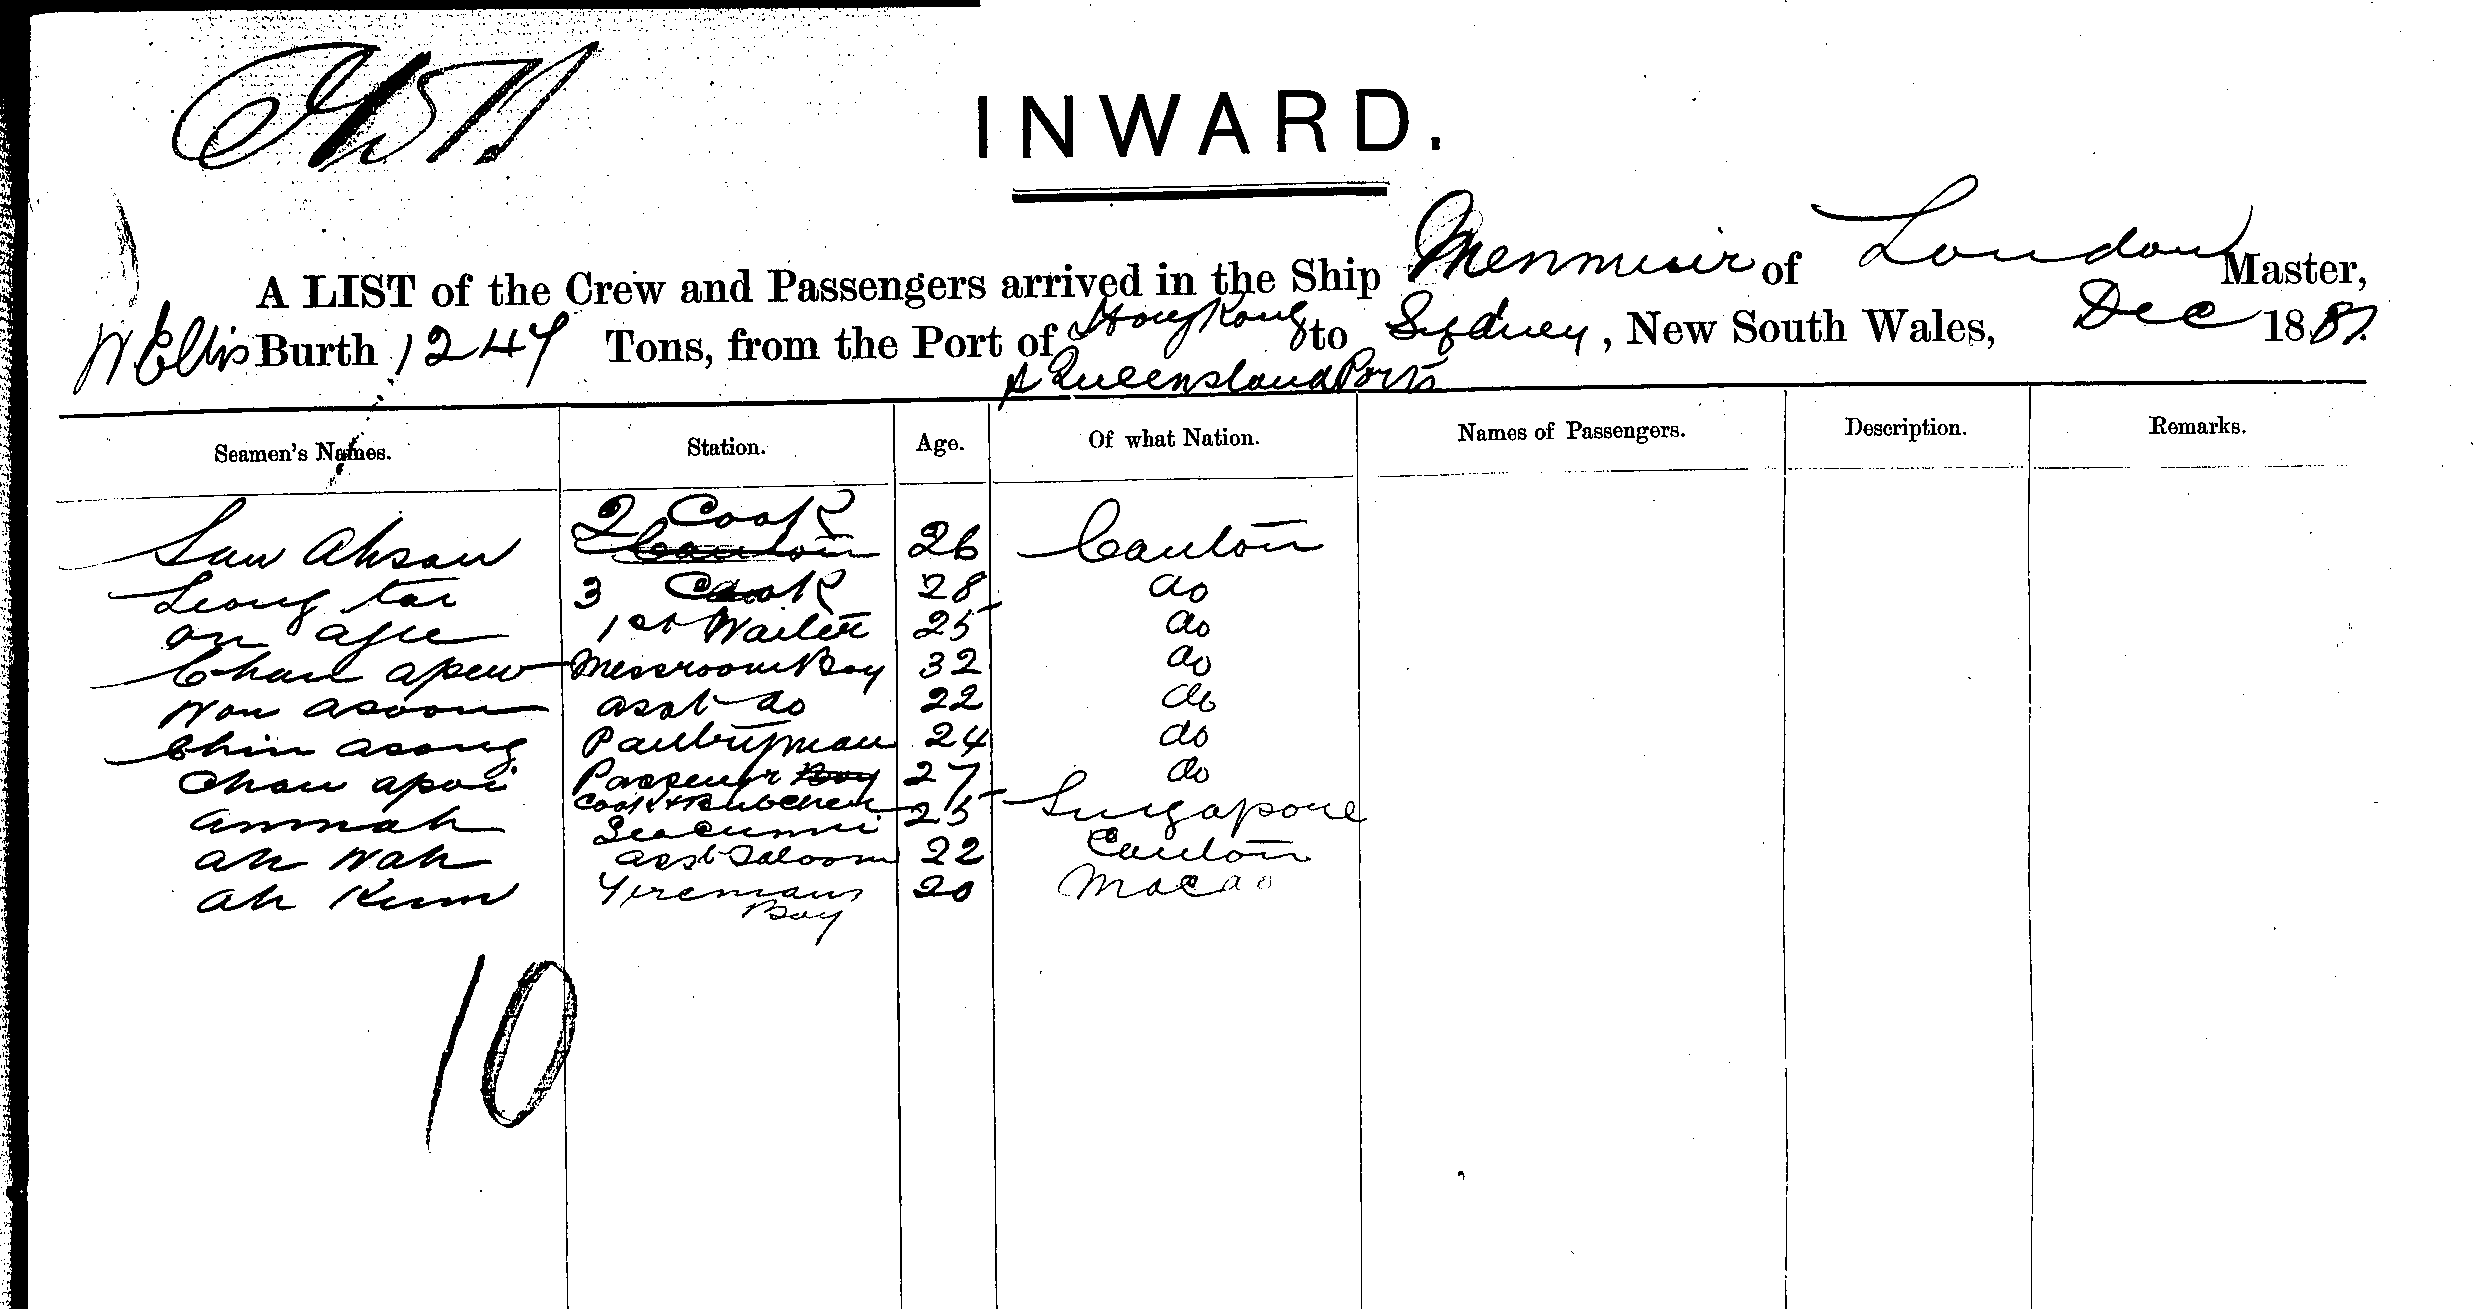 INWARD.
A LIST of the Crew and Passengers arrived in the Ship Menmuir of London Master,
W Ellis Burth 1247 Tons, from the Port of Hong Kong to Sydney, New South Wales, Dec 1887.
& Queensland Ports
Seamen's Names. Station. Age. Of what Nation. Names of Passengers. Description. Remarks.
2 Cook
Sun Ahsau Canton 26 Canton
Leong tai 3 Cook 28 do
on 1st Waiter 25 do
Chan apew Messroom Boy 32 do
Won asoon asst do 22 do
Chin asong Pantryman 24 do
Chan apoi Passengr Boy 27 do
Cook & Butcher
ammah Seacunni 25 Singapore
ah Wah asst Saloon 22 Canton
ah Kum Firemans 20 Macao
Boy
10